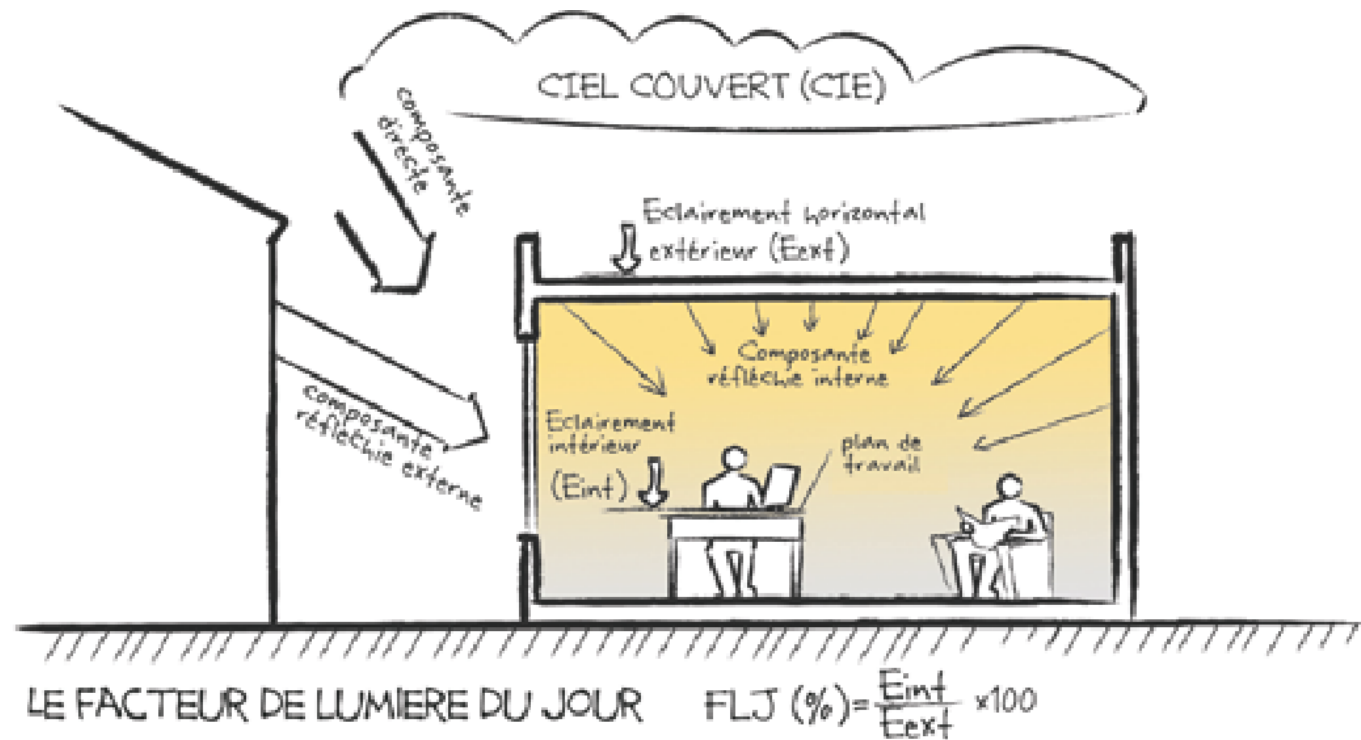 CIEL COUVERT (CIE)
composante
directe
Eclairement horizontal
extérieur (Eext)
Composante
réfléchie interne
composante
réfléchie externe
Eclairement
intérieur
(Eint)
plan de
travail
LE FACTEUR DE LUMIERE DU JOUR FLJ (%) = Eint / Eext x100